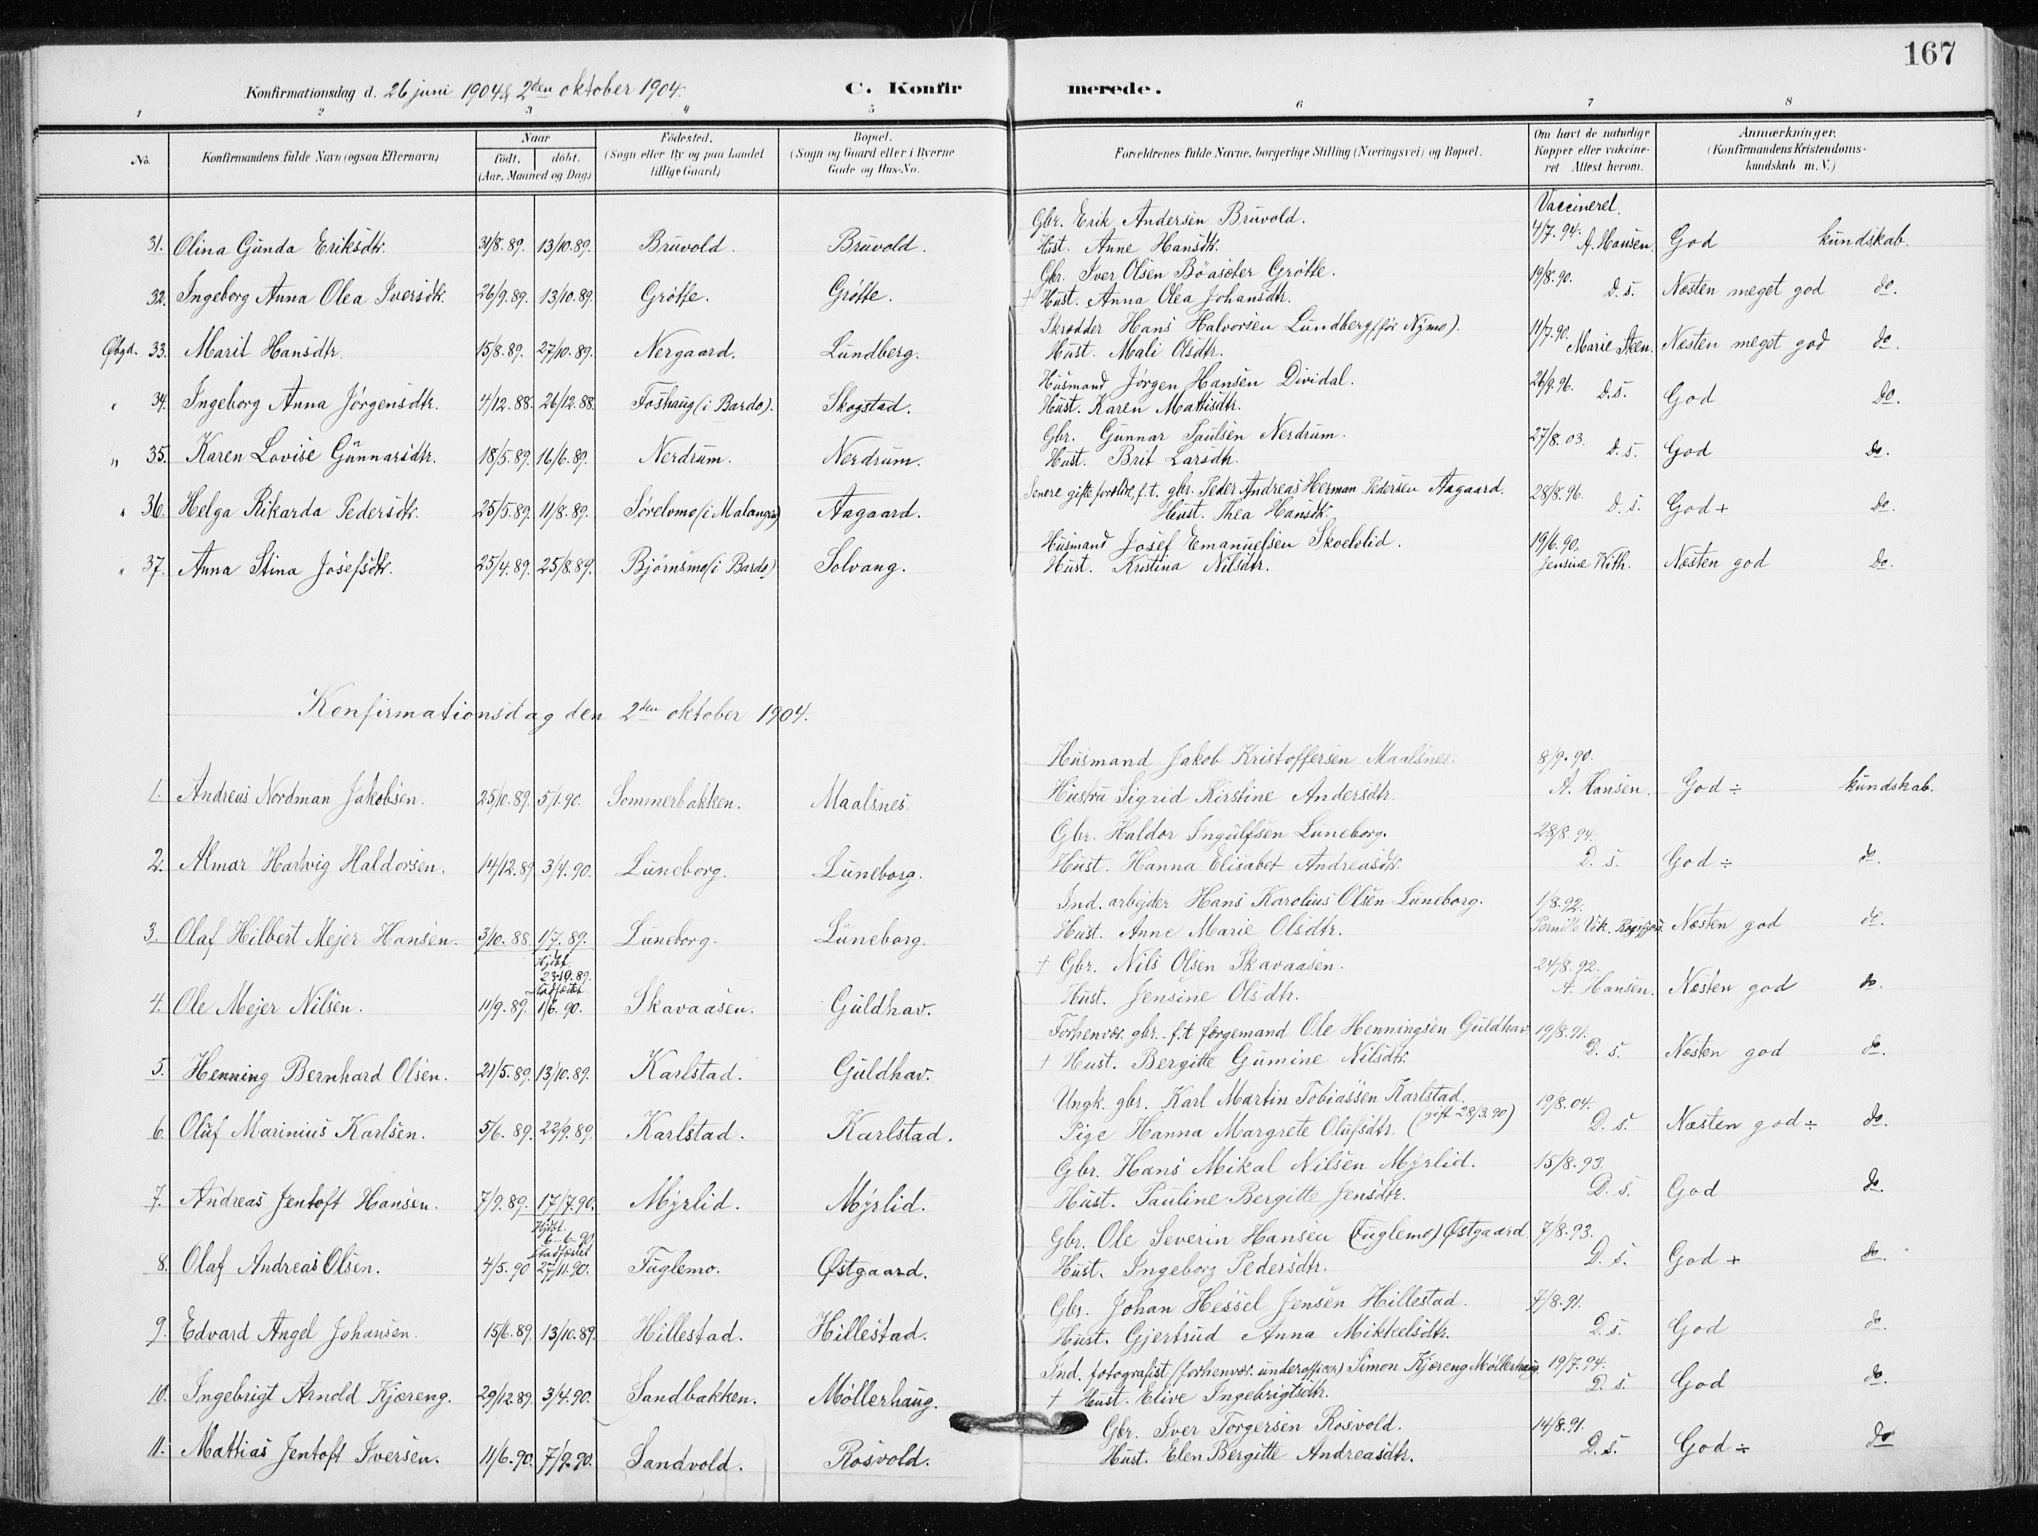 167
Konfirmationsdag d. 26 juni 1904 & 2den oktober 1904. C. Konfir merede.
1 2 3 4 5 6 7 8
No. Konfirmandens fulde Navn (ogsaa Efternavn) Naar født, døbt. (Aar, Maaned og Dag) Fødested. (Sogn eller By og paa Landet tillige Gaard) Bopæl. (Sogn og Gaard eller i Byerne Gade og Hus-No. Forældrenes fulde Navne, borgerlige Stilling (Næringsvei) og Bopæl. Om havt de naturlige Kopper eller vakcineret Attest herom. Anmærkninger. (Konfirmandens Kristendomskundskab m. V.)
Gbr. Erik Andersen Bruvold. Vaccineret.
31. Olina Gunda Eriksdtr. 31/8.89. 13/10.89. Bruvold. Bruvold. Hust. Anne Hansdtr. 4/7.94. A. Hansen. God kundskab.
Gbr. Iver Olsen Bøasæter Grøtte. 19/8.90.
32. Ingeborg Anna Olea Iversdtr. 26/9.89. 13/10.89. Grøtte. Grøtte. † Hust. Anna Olea Johansdtr. D. s. Næsten meget god do.
Skrædder Hans Halvorsen Lundberg (før Nymo).
Øbgd. 33. Marit Hansdtr. 15/8.89. 27/10.89. Nergaard. Lundberg. Hust. Mali Olsdtr. 11/7.90. Marie Steen. Næsten meget god do.
Husmand Jørgen Hansen Dividal. 26/9.96.
" 34. Ingeborg Anna Jørgensdtr. 4/12.88. 26/12.88. Foshaug (i Bardo). Skogstad. Hust. Karen Mattisdtr. D. s. God do.
Gbr. Gunnar Paulsen Nerdrum. 27/8.03.
" 35. Karen Lovise Gunnarsdtr. 18/5.89. 16/6.89. Nerdrum. Nerdrum. Hust. Brit Larsdtr. D. s. God do.
Senere gifte forældr. f.t. gbr. Peder Andreas Herman Pedersen Aagaard. 28/8.96.
" 36. Helga Rikarda Pedersdtr. 25/5.89. 11/8.89. Sørelvmo (i Malangen) Aagaard. Hust. Thea Hansdtr. D. s. God + do.
Husmand Josef Emanuelsen Skoelvlid. 19/6.90.
" 37. Anna Stina Josefsdtr. 25/4.89. 25/8.89. Bjørnsmo (i Bardo) Solvang. Hust. Kristina Nilsdtr. Jensine Kith. Næsten god do.
Konfirmationsdag den 2den oktober 1904.
Husmand Jakob Kristoffersen Maalsnes. 8/9.90.
1. Andreas Nordman Jakobsen. 25/10.89. 5/1.90. Sommerbakken. Maalsnes. Hustru Sigrid Kirstine Andersdtr. A. Hansen. God ÷ kundskab.
Gbr. Haldor Ingulfsen Luneborg. 28/8.94.
2. Almar Hartvig Haldorsen. 14/12.89. 3/4.90. Luneborg. Luneborg. Hust. Hanna Elisabet Andreasdtr. D. s. God ÷ do.
Ind. arbejder Hans Karolius Olsen Luneborg. 1/8.92.
3. Olaf Hilbert Mejer Hansen. 3/10.88. 1/7.89. Luneborg. Luneborg. Hust. Anne Marie Olsdtr. Næsten god do.
Hjdbt. 23.10.89. stadfæstet † Gbr. Nils Olsen Skavaasen. 24/8.92.
4. Ole Mejer Nilsen. 11/9.89. 1/6.90. Skavaasen. Guldhav. Hust. Jensine Olsdtr. A. Hansen. Næsten god do.
Forhenvær. gbr. f.t færgemand Ole Henningsen Guldhav 19/8.91.
5. Henning Bernhard Olsen. 21/5.89. 13/10.89. Karlstad. Guldhav. † Hust. Bergitte Gumine Nilsdtr. D. s. Næsten god do.
Ungk. gbr. Karl Martin Tobiassen Karlstad. 19/8.04.
6. Oluf Marinius Karlsen. 5/6.89. 22/9.89. Karlstad. Karlstad. Pige Hanna Margrete Olufsdtr. (gift 28/3.90) D. s. Næsten god ÷ do.
Gbr. Hans Mikal Nilsen Myrlid. 15/8.93.
7. Andreas Jentoft Hansen. 7/9.89. 17/7.90. Myrlid. Myrlid. Hust. Pauline Bergitte Jensdtr. D. s. God do.
Hjdbt. 6-6-90. stadfæstet Gbr. Ole Severin Hansen (Fuglemo) Østgaard. 7/8.93.
8. Olaf Andreas Olsen. 4/5.90 27/11.90. Fuglemo. Østgaard. Hust. Ingeborg Pedersdtr. D. s. God + do.
Gbr. Johan Hessel Jensen Hillestad. 7/8.91.
9. Edvard Angel Johansen. 15/6.89. 13/10.89. Hillestad. Hillestad. Hust. Gjertrud Anna Mikkelsdtr. D. s. God do
Ind. fotografist (forhenvær. underofficer) Simon Kjæreng Møllerhaug 19/7.94.
10. Ingebrigt Arnold Kjæreng. 29/12.89. 3/4.90. Sandbakken. Møllerhaug. † Hust. Elive Ingebrigtsdtr. D. s. God do.
Gbr. Iver Torgersen Rosvold. 14/8.91.
11. Mattias Jentoft Iversen. 11/6.90. 7/9.90. Sandvold. Rosvold. Hust. Elen Bergitte Andreasdtr. D. s. God ÷ do